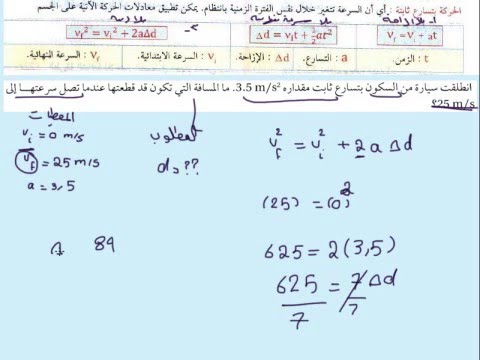 الحركة بتسارع ثابتة : أي أن السرعة تتغير خلال نفس الفترة الزمنية بانتظام. يمكن تطبيق معادلات الحركة الآتية على الجسم
Vf² = Vi² + 2aΔd
Δd = Vit + ½at²
Vf = Vi + at
t : الزمن. Δd : الإزاحة. a : التسارع. Vi : السرعة الابتدائية. Vf : السرعة النهائية.
انطلقت سيارة من السكون بتسارع ثابت مقداره 3.5 m/s². ما المسافة التي تكون قد قطعتها عندما تصل سرعتها إلى
25 m/s؟
المعطيات
Vi = 0 m/s
Vf = 25 m/s
a = 3,5
المطلوب
d = ??
Vf² = Vi² + 2 a Δd
(25) = (0)²
625 = 2(3,5)
625 = 7 Δd
7 7
89